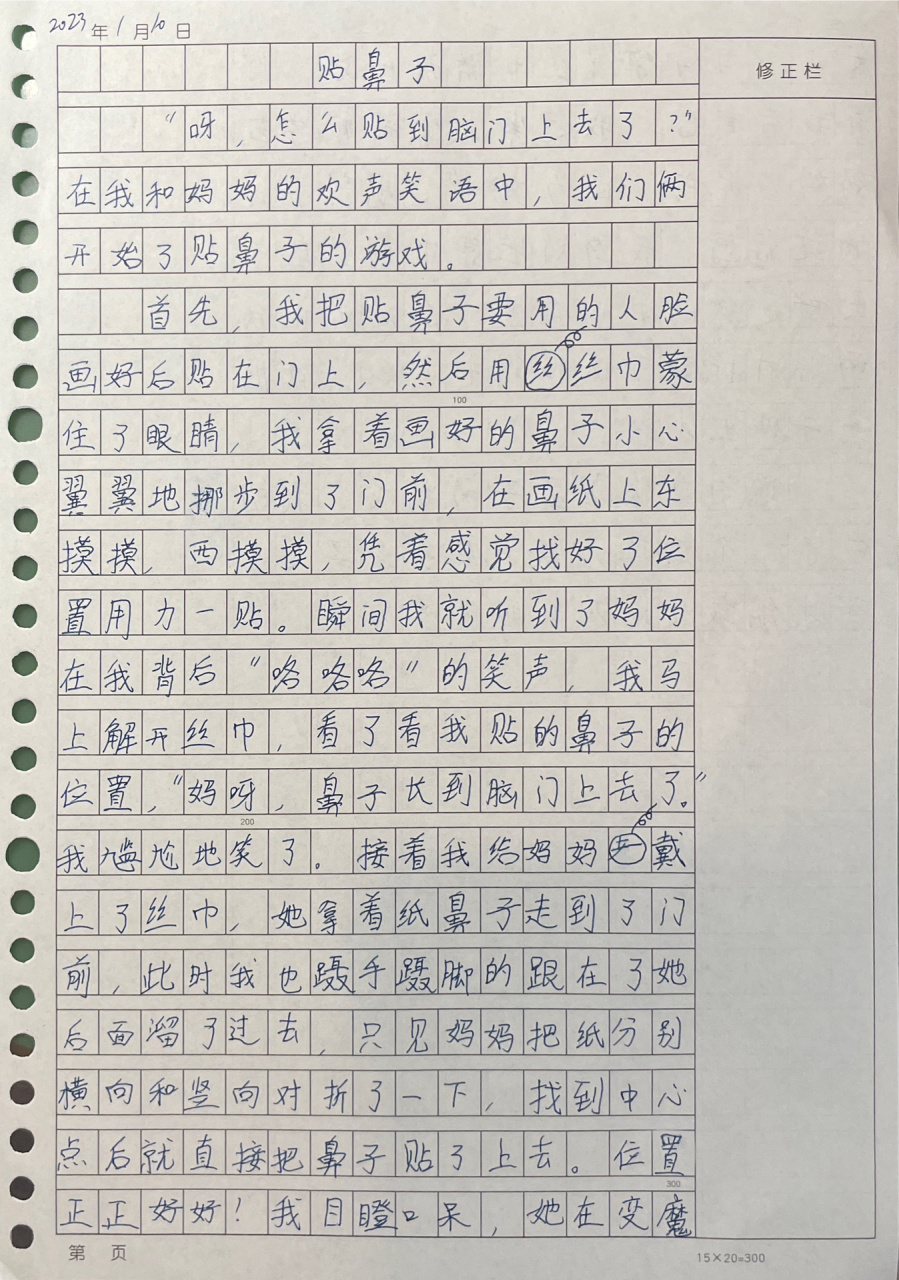 2023年1月10日
贴鼻子
修正栏
“呀，怎么贴到脑门上去了？”
在我和妈妈的欢声笑语中，我们俩
开始了贴鼻子的游戏。
首先，我把贴鼻子要用的人脸
画好后贴在门上，然后用丝丝巾蒙
100
住了眼睛，我拿着画好的鼻子小心
翼翼地挪步到了门前，在画纸上东
摸摸，西摸摸，凭着感觉找好了位
置用力一贴。瞬间我就听到了妈妈
在我背后“咯咯咯”的笑声，我马
上解开丝巾，看了看我贴的鼻子的
位置，“妈呀，鼻子长到脑门上去了。”
200
我尴尬地笑了。接着我给妈妈戴
上了丝巾，她拿着纸鼻子走到了门
前，此时我也蹑手蹑脚的跟在了她
后面溜了过去，只见妈妈把纸分别
横向和竖向对折了一下，找到中心
点后就直接把鼻子贴了上去。位置
300
正正好好！我目瞪口呆，她在变魔
第 页
15×20=300